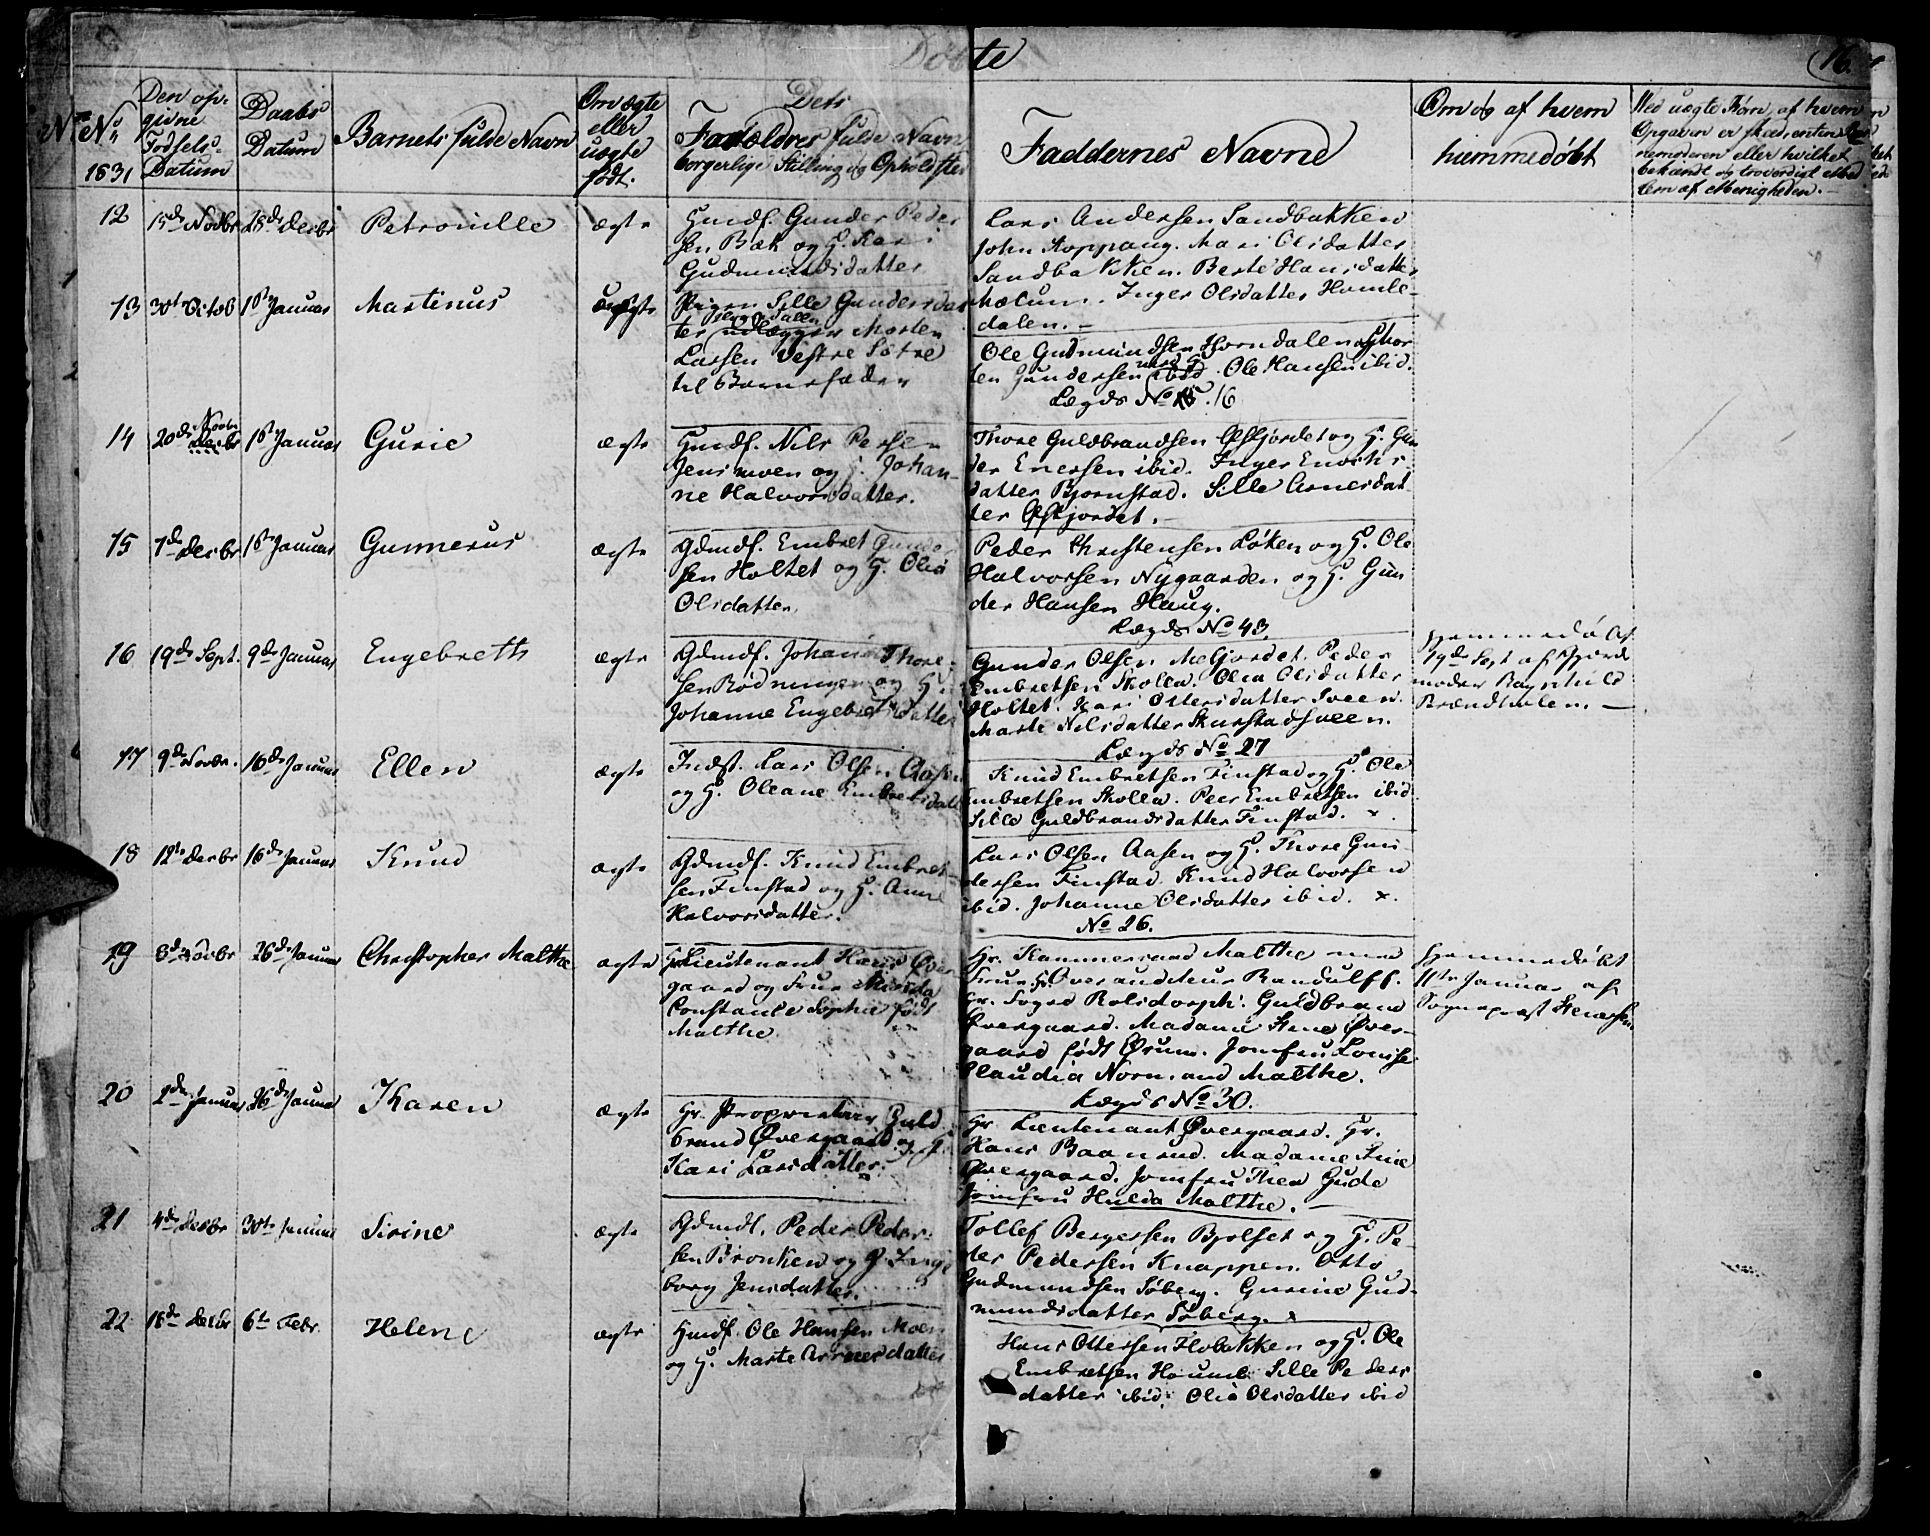 Døbte
16.
No
1831
Den op-
givne
Fødsels-
Datum
Daabs
Datum
Barnets fulde Navn
Om ægte
eller
uægte
født.
Dets
Forældres fulde Navn
borgerlige Stilling og Opholdsted
Faddernes Navne
Om og af hvem
hiemmedøbt
Ved uægte Børn, af hvem
Opgaven er skeed, enten
bekændt og troværdigt Med
lem af Menigheden.
12 15de Novbr 28de Decbr Petronille ægte
Huusf. Gunder Peder
sen Bæk og H. Kari
Gudmundsdatter
Lars Andersen Sandbakken
John Koppang. Mari Olsdatter
Sandbakken. Berte Hansdatter
Mælum. Inger Olsdatter Homle-
dalen.
13 30te Octob 1ste Januar Martinus uægte
Pigen Sille Gundersdat
ter udlægger Morten
Larsen Vestre Sætre
til Barnefader
Ole Gudmundsen Horndalen og Mor
ten Gundersen ibid. Ole Hansen ibid.
Lægds No 16
14 20de Novbr 1ste Januar Gurie ægte
Huusf. Nils Persen
Jensmoen og H. Johan-
ne Halvorsdatter.
Thore Guldbrandsen Øfskjordet og H. Gun
der Enersen ibid. Inger Enochs
datter Bjørnstad. Sille Arnesdat
ter Øfskjordet.
15 7de Decbr 1ste Januar Gunnerus ægte
Gdmdf. Embret Gunder
sen Holtet og H. Olia
Olsdatter.
Peder Christensen Løken og H. Ole
Halvorsen Nygaarden og H. Gun
der Hansen Haug.
Lægds No 43.
16 19de Sept. 9de Januar Engebreth ægte
Gdmdf. Johannes Thore-
sen Rødningen og H.
Johanne Engebretsdatter
Gunder Olsen Meljordet. Peder
Embretsen Skolla. Olia Olsdatter
Holtet. Kari Ottersdatter Sveen.
Marte Nilsdatter Skurstadsveen.
Lægds No 27
Hjemmedøbt
19de Sept af Gjorde
moder Ragnhild
Brændholen.
17 9de Novbr. 16de Januar Ellen ægte
Indst. Lars Olsen Aasen
og H. Oleane Embretsdatter
Knud Embretsen Finstad og H. Ole
Embretsen Skolla. Peer Embretsen ibid
Sille Guldbrandsdatter Finstad. x.
18 12te Decbr 16de Januar Knud ægte
Gdmdf. Knud Embret
sen Finstad og H. Anne
Halvorsdatter.
Lars Olsen Aasen og H. Thore Gun
dersen Finstad. Knud Halvorsen
ibid. Johanne Olsdatter ibid. x.
No 26.
19 8de Novbr 26de Januar Christopher Malthe ægte
Hr Lieutenant Hans Øver
gaard og Frue
Constance Sophie født
Malthe.
Hr. Kammerraad Malthe med
Frue. Hr. Overauditeur Randulff.
Hr. Foged Rolsdorph. Guldbrand
Øvergaard. Madame Øver-
gaard født Ørum. Jomfru Louise
Claudia Normand Malthe.
Lægds No 30.
Hjemmedøbt
11te Januar af
Sognepræst
20 2de Januar 26de Januar Karen ægte
Hr. Proprietair Guld
brand Øvergaard og H.
Kari Larsdatter.
Hr. Lieutenant Øvergaard. Hr.
Hans Baanrud. Madame
Øvergaard. Jomfru Thea Gude
Jomfru Hulda Malthe.
21 4de Decbr 30te Januar Sirine ægte
Gdmdf. Peder Peder-
sen Bronken og H. Inge
borg Jensdatter.
Tollef Bergersen Bjølset og H. Pe
der Pedersen Knappen. Otto
Gudmundsen Søberg. Gurine Gud-
mundsdatter Søberg. x
22 18de Decbr 6te Febr. Helene ægte
Huusf. Ole Hansen Moen
og H. Marte Arnesdatter
Hans Ottersen Flobakken og H. Ole
Embretsen. Sille Peders
datter ibid. Olia Olsdatter ibid